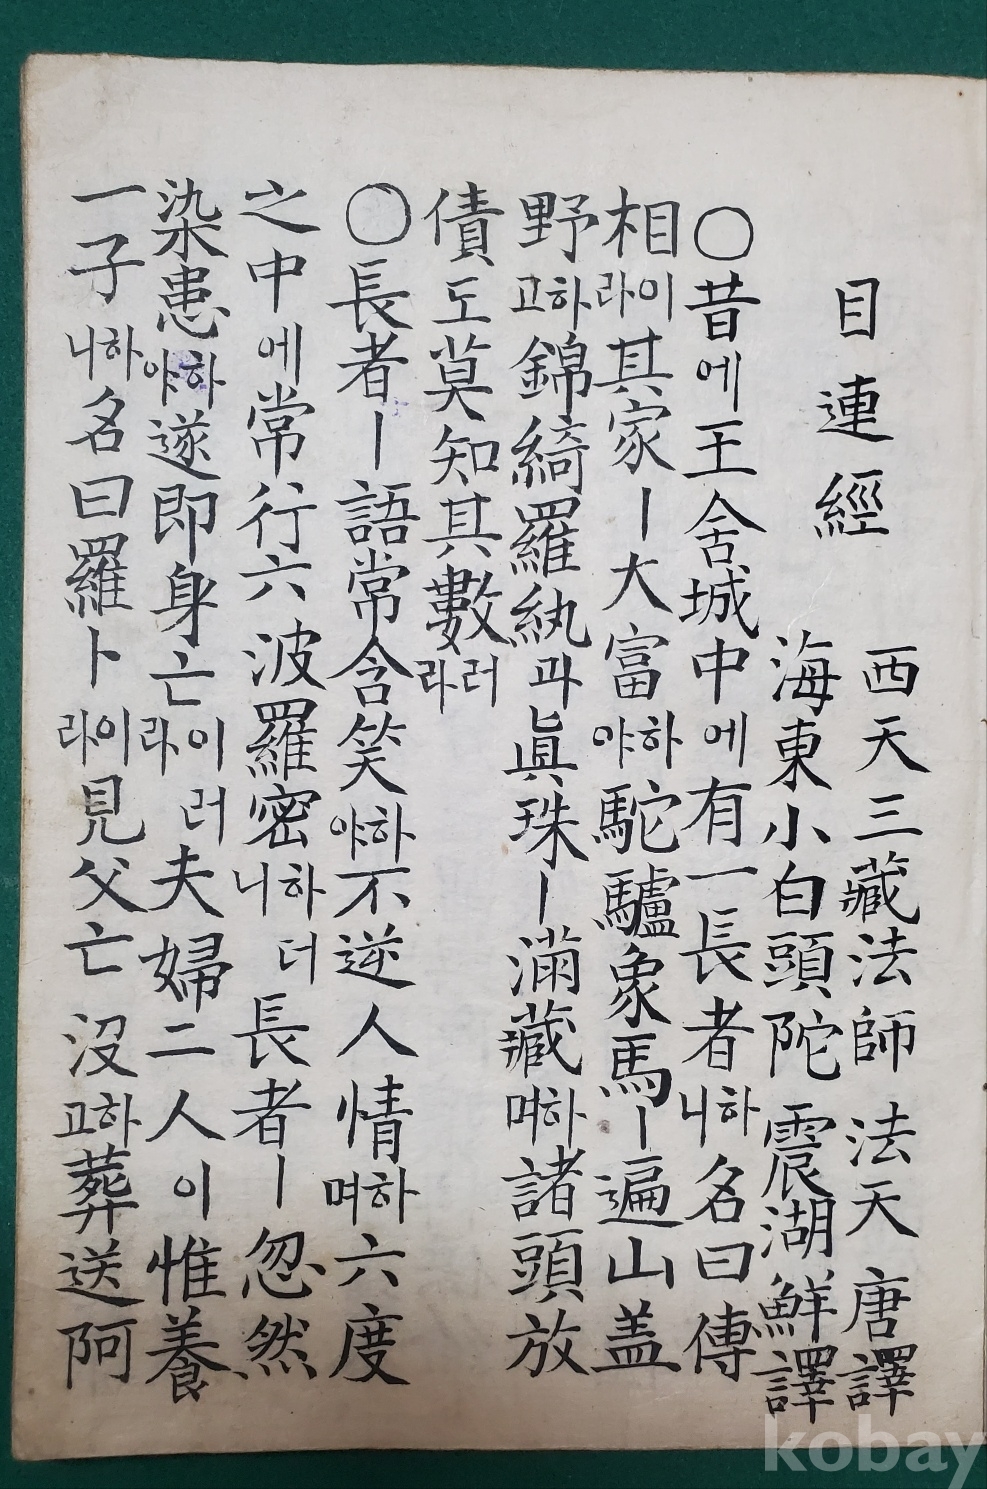 目連經
西天三藏法師 法天 唐譯
海東小白頭陀 震湖 鮮譯
○昔에王舍城中에有一長者하니名曰傅
相이라其家ㅣ大富하야駝驢象馬ㅣ遍山盖
野하고錦綺羅紈과眞珠ㅣ滿藏하며諸頭放
債도莫知其數러라
○長者ㅣ語常含笑하야不逆人情하며六度
之中에常行六波羅密하더니長者ㅣ忽然
染患하야遂即身亡이러라夫婦二人이惟養
一子하니名曰羅卜이라見父亡沒하고葬送阿
kobay